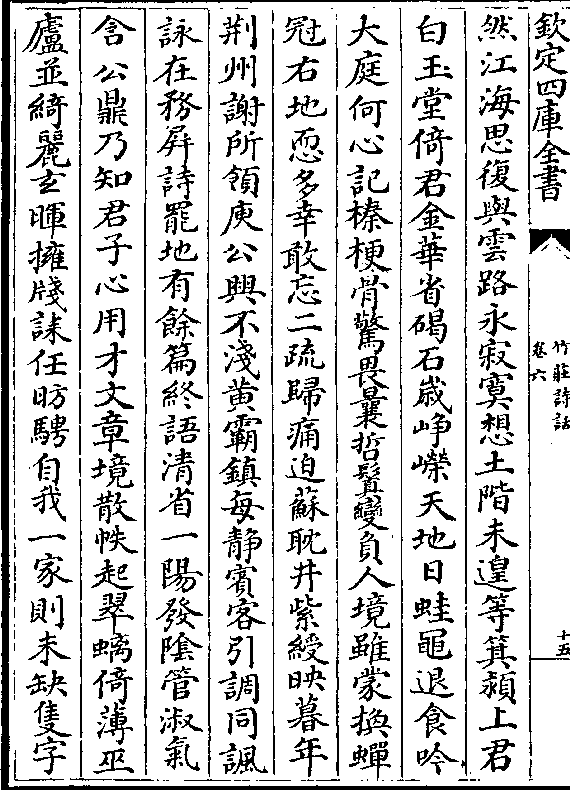 欽定四庫全書
竹莊詩話
卷六
十五
然江海思復與雲路永寂寞想土階未遑等箕潁上君
白玉堂倚君金華省碣石歲崢嶸天地日蛙黽退食吟
大庭何心記榛梗骨驚畏曩哲鬒變負人境雖蒙換蟬
冠右地恧多幸敢忘二疏歸痛迫蘇耽井紫綬映暮年
荆州謝所領庾公興不淺黃霸鎮每静賓客引調同諷
詠在務屏詩罷地有餘篇終語清省一陽發陰管淑氣
含公鼎乃知君子心用才文章境散帙起翠螭倚薄巫
廬並綺麗玄暉擁牋誄任昉騁自我一家則未缺隻字